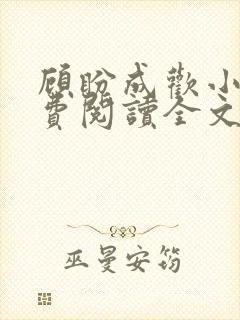 顧盼成歡小
費閱讀全文
巫曼安筠